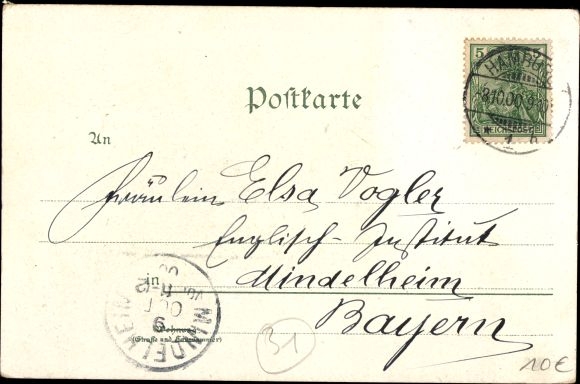 5
HAMBURG
8.10.00.9-
REICHSPOST
1 h
Postkarte
An
Fräulein Elsa Vogler
Englisch-Institut
in Mindelheim
Bayern
MINDELHEIM
9
OCT
00
Wohnung
(Straße und Hausnummer)
31
10€